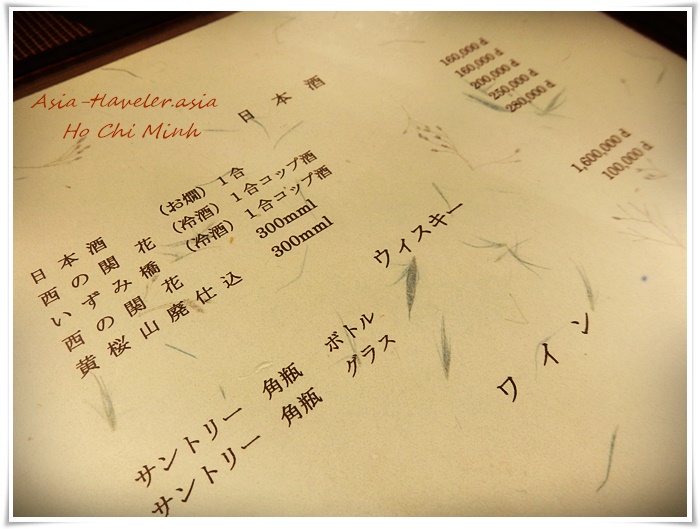 Asia-traveler.asia
Ho Chi Minh
日本酒
日本酒 (お燗) 1合 160,000 đ
西の関 花 (冷酒) 1合コップ酒 160,000 đ
いずみ橋 (冷酒) 1合コップ酒 200,000 đ
西の関 花 300mml 250,000 đ
黄桜山廃仕込 300mml 280,000 đ
ウィスキー
サントリー 角瓶 ボトル 1,600,000 đ
サントリー 角瓶 グラス 100,000 đ
ワイン